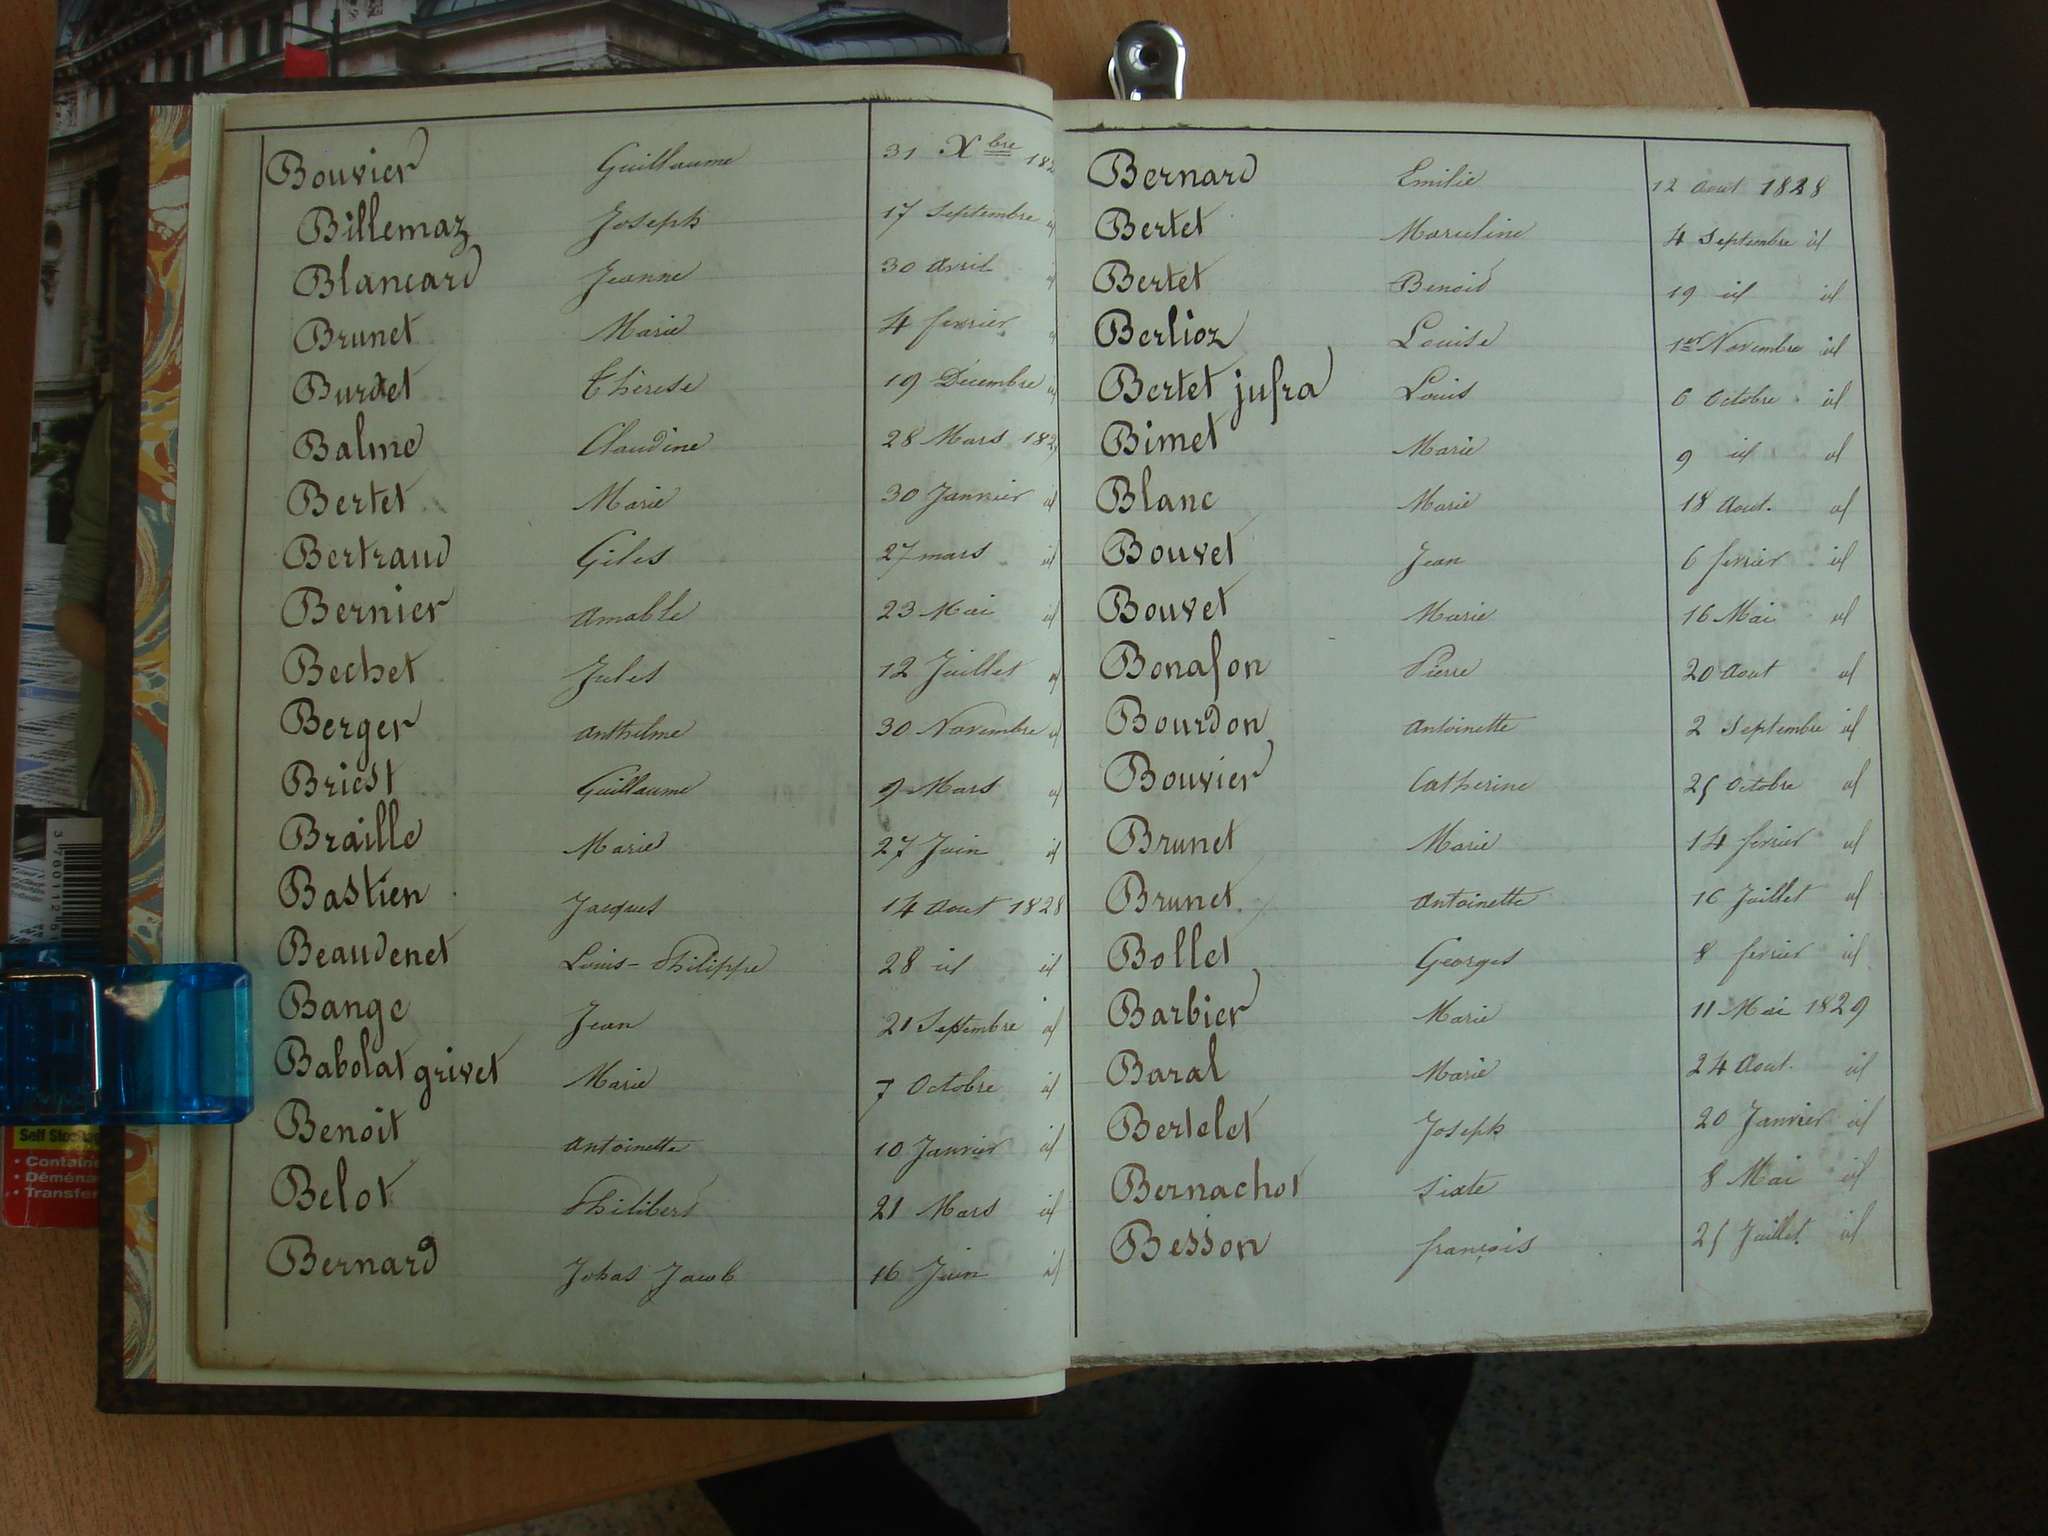 Bouvier Guillaume 31 Xbre 182
Billemaz Joseph 17 Septembre id
Blancard Jeanne 30 avril
Brunet Marie 4 fevrier
Burdet thèrese 19 Decembre id
Balme Claudine 28 Mars 182
Bertet Marie 30 Janvier id
Bertraud Giles 27 mars id
Bernier amable 23 Mai id
Bechet Jules 12 Juillet id
Berger anthelme 30 Novembre id
Briest Guillaume 9 Mars id
Braille Marie 27 Juin id
Bastien Jacques 14 aout 1828
Beaudenet Louis-Philippe 28 id id
Bange Jean 21 Septembre id
Babolat grivet Marie 7 Octobre id
Benoit antoinette 10 Janvier id
Belot Philibert 21 Mars id
Bernard Jacob 16 Juin id
Bernard Emilie 12 aout 1828
Bertet Marceline 4 Septembre id
Bertet Benoid 19 id id
Berlioz Louise 1er Novembre id
Bertet jufra Louis 6 Octobre id
Bimet Marie 9 id id
Blanc Marie 18 aout. id
Bouvet Jean 6 fevrier id
Bouvet Marie 16 Mai id
Bonafon Pierre 20 aout id
Bourdon antoinette 2 Septembre id
Bouvier Catherine 25 Octobre id
Brunet Marie 14 fevrier id
Brunet antoinette 16 Juillet id
Bollet Georges 8 fevrier id
Barbier Marie 11 Mai 1829
Baral Marie 24 aout. id
Bertelet Joseph 20 Janvier id
Bernachot Sixte 8 Mai id
Besson françois 25 Juillet id